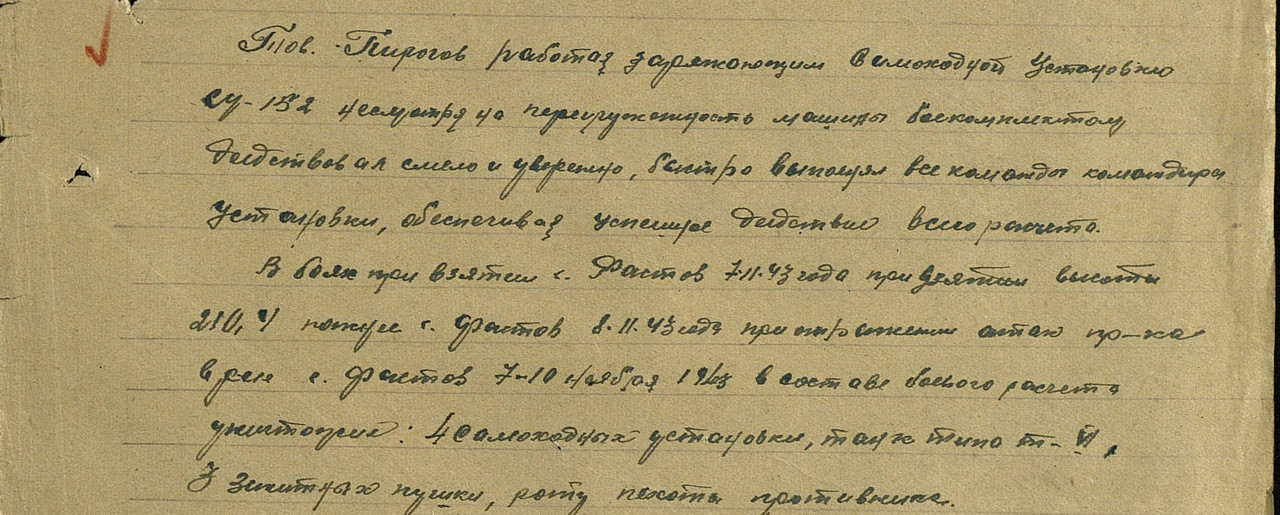 Тов. Пирогов работая заряжающим самоходной установки
СУ-152 несмотря на перегруженность машины боекомплектом
действовал смело и уверенно, быстро выполнял все команды командира
установки, обеспечивая успешное действие всего расчета.
В боях при взятии г. Фастов 7.11.43 года при взятии высоты
210,4 г. Фастов 8.11.43 года при отражении атак пр-ка
в р-не г. Фастов 7-10 ноября 1943 в составе боевого расчета
уничтожил: 4 самоходных установки, танк типа Т-VI,
3 зенитных пушки, роту пехоты противника.